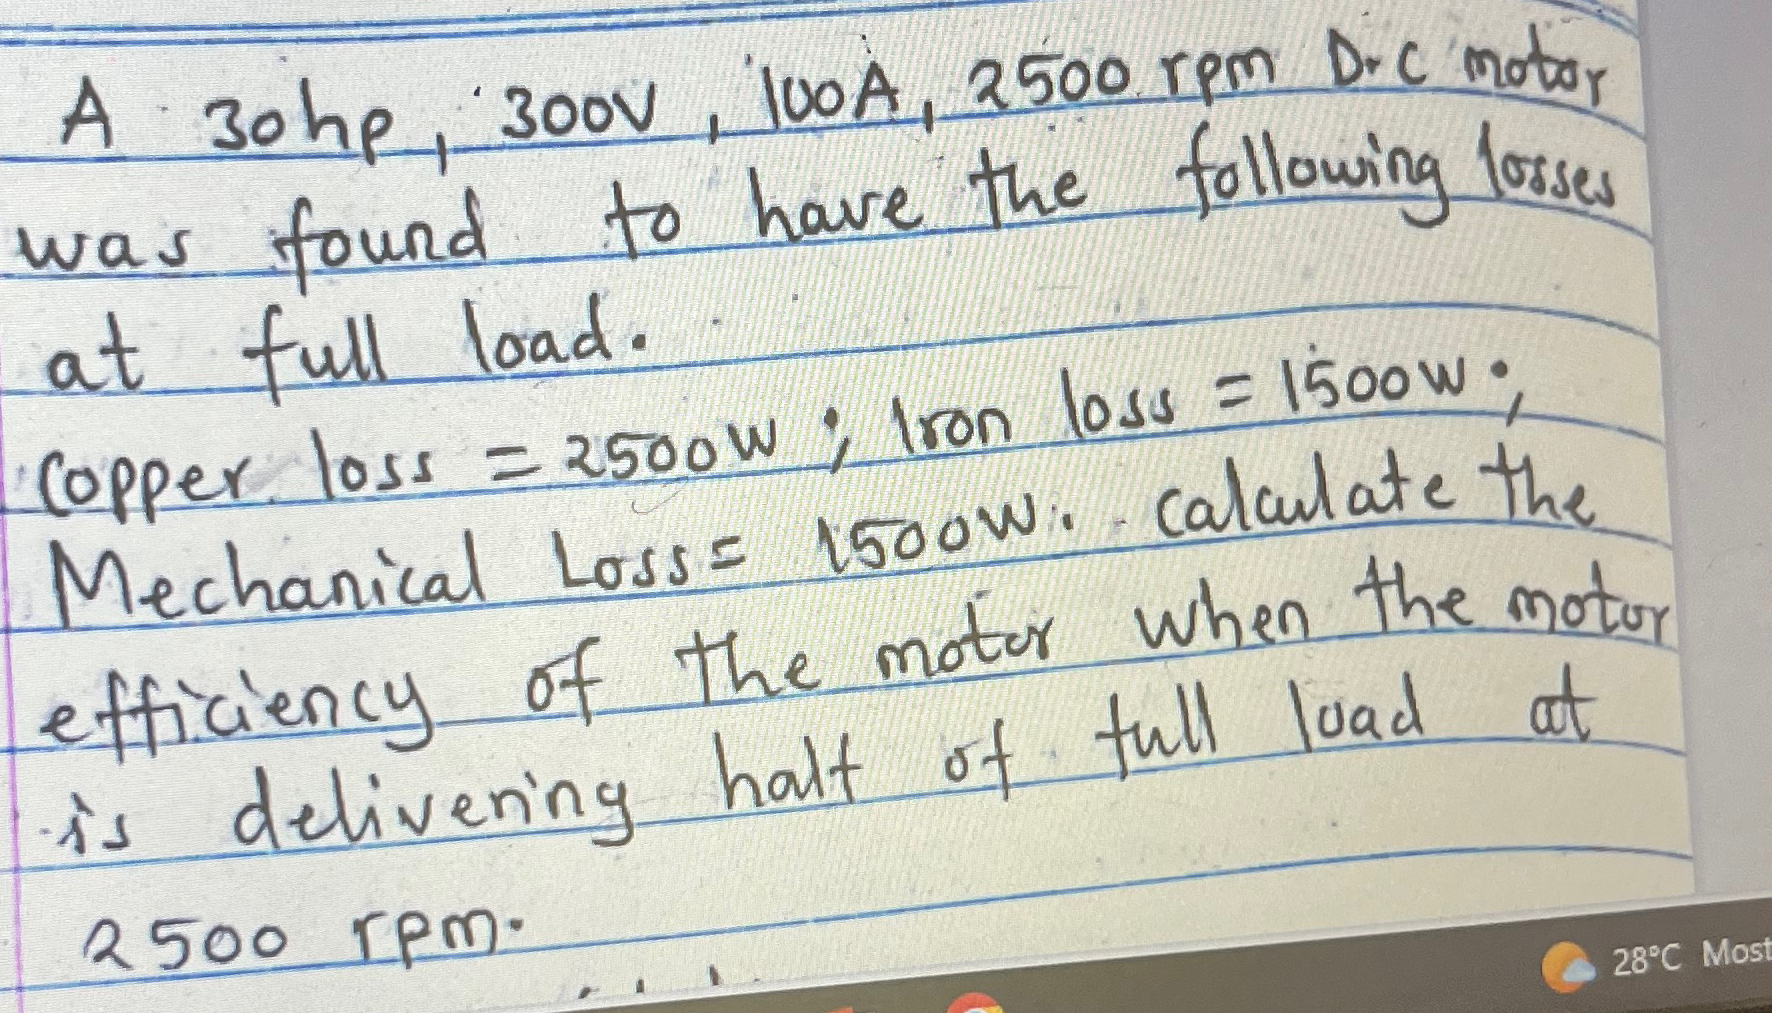 A 30hp, 300V, 100A, 2500 rpm D.C motor
was found to have the following losses
at full load.
Copper loss = 2500W; Iron loss = 1500W;
Mechanical Loss = 1500W. calculate the
efficiency of the motor when the motor
is delivering half of full load at
2500 rpm.
28°C Most